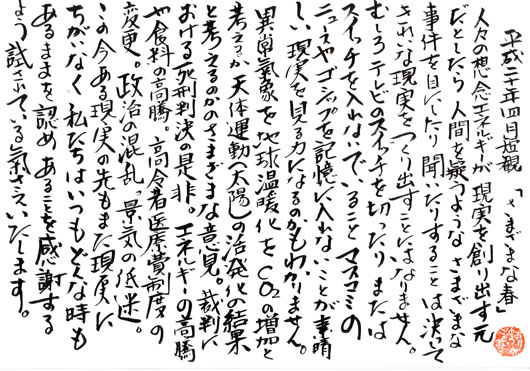 平成二十年四月短観 「さまざまな春」
人々の想念エネルギーが現実を創り出す元
だとしたら 人間を疑うような さまざまな
事件を目にしたり 聞いたりすることは 決して
きれいな現実をつくり出すことにはなりません。
むしろテレビのスイッチを切ったり または
スイッチを入れないでいること マスコミの
ニュースやゴシップを記憶に入れないことが 素晴
しい現実を見る力になるのかもわかりません。
異常気象を地球温暖化をCO2の増加と
考えるか 天体運動(太陽)の活発化の結果
と考えるのかのさまざまな意見。裁判に
おける死刑判決の是非。エネルギーの高騰
や食料の高騰。高令者医療費制度の
変更。政治の混乱。景気の低迷。
この今ある現実の先もまた現実に
ちがいなく 私たちはいつもどんな時も
あるままを認め あることを感謝する
よう試されている気さえいたします。